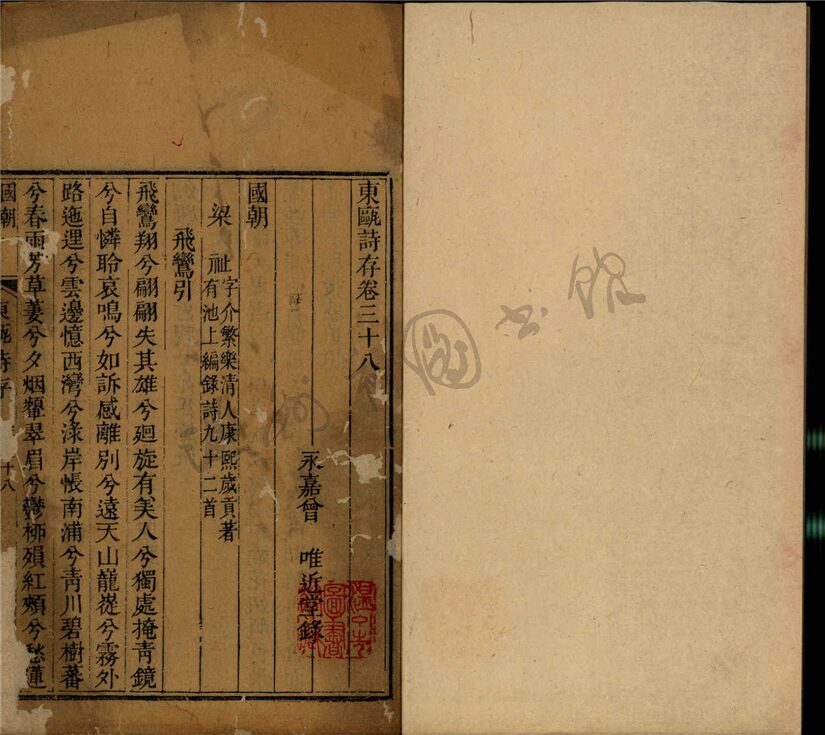 東甌詩存卷三十八
永嘉曾 唯近堂錄
國朝
梁 祉字介繁樂清人康熙歲貢著
有池上編錄詩九十二首
飛鸞引
飛鸞翔兮翩翩失其雄兮廻旋有美人兮獨處掩青鏡
兮自憐聆哀鳴兮如訴感離別兮遠天山巃嵸兮霧外
路迤逦兮雲邊憶西灣兮淥岸悵南浦兮青川碧樹蕃
兮春雨芳草萋兮夕烟顰翠眉兮柳殞紅頰兮愁蓮
國朝
東甌詩存
十八
圖書